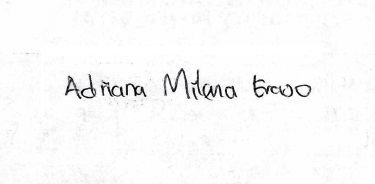 Adriana Milena Eraso